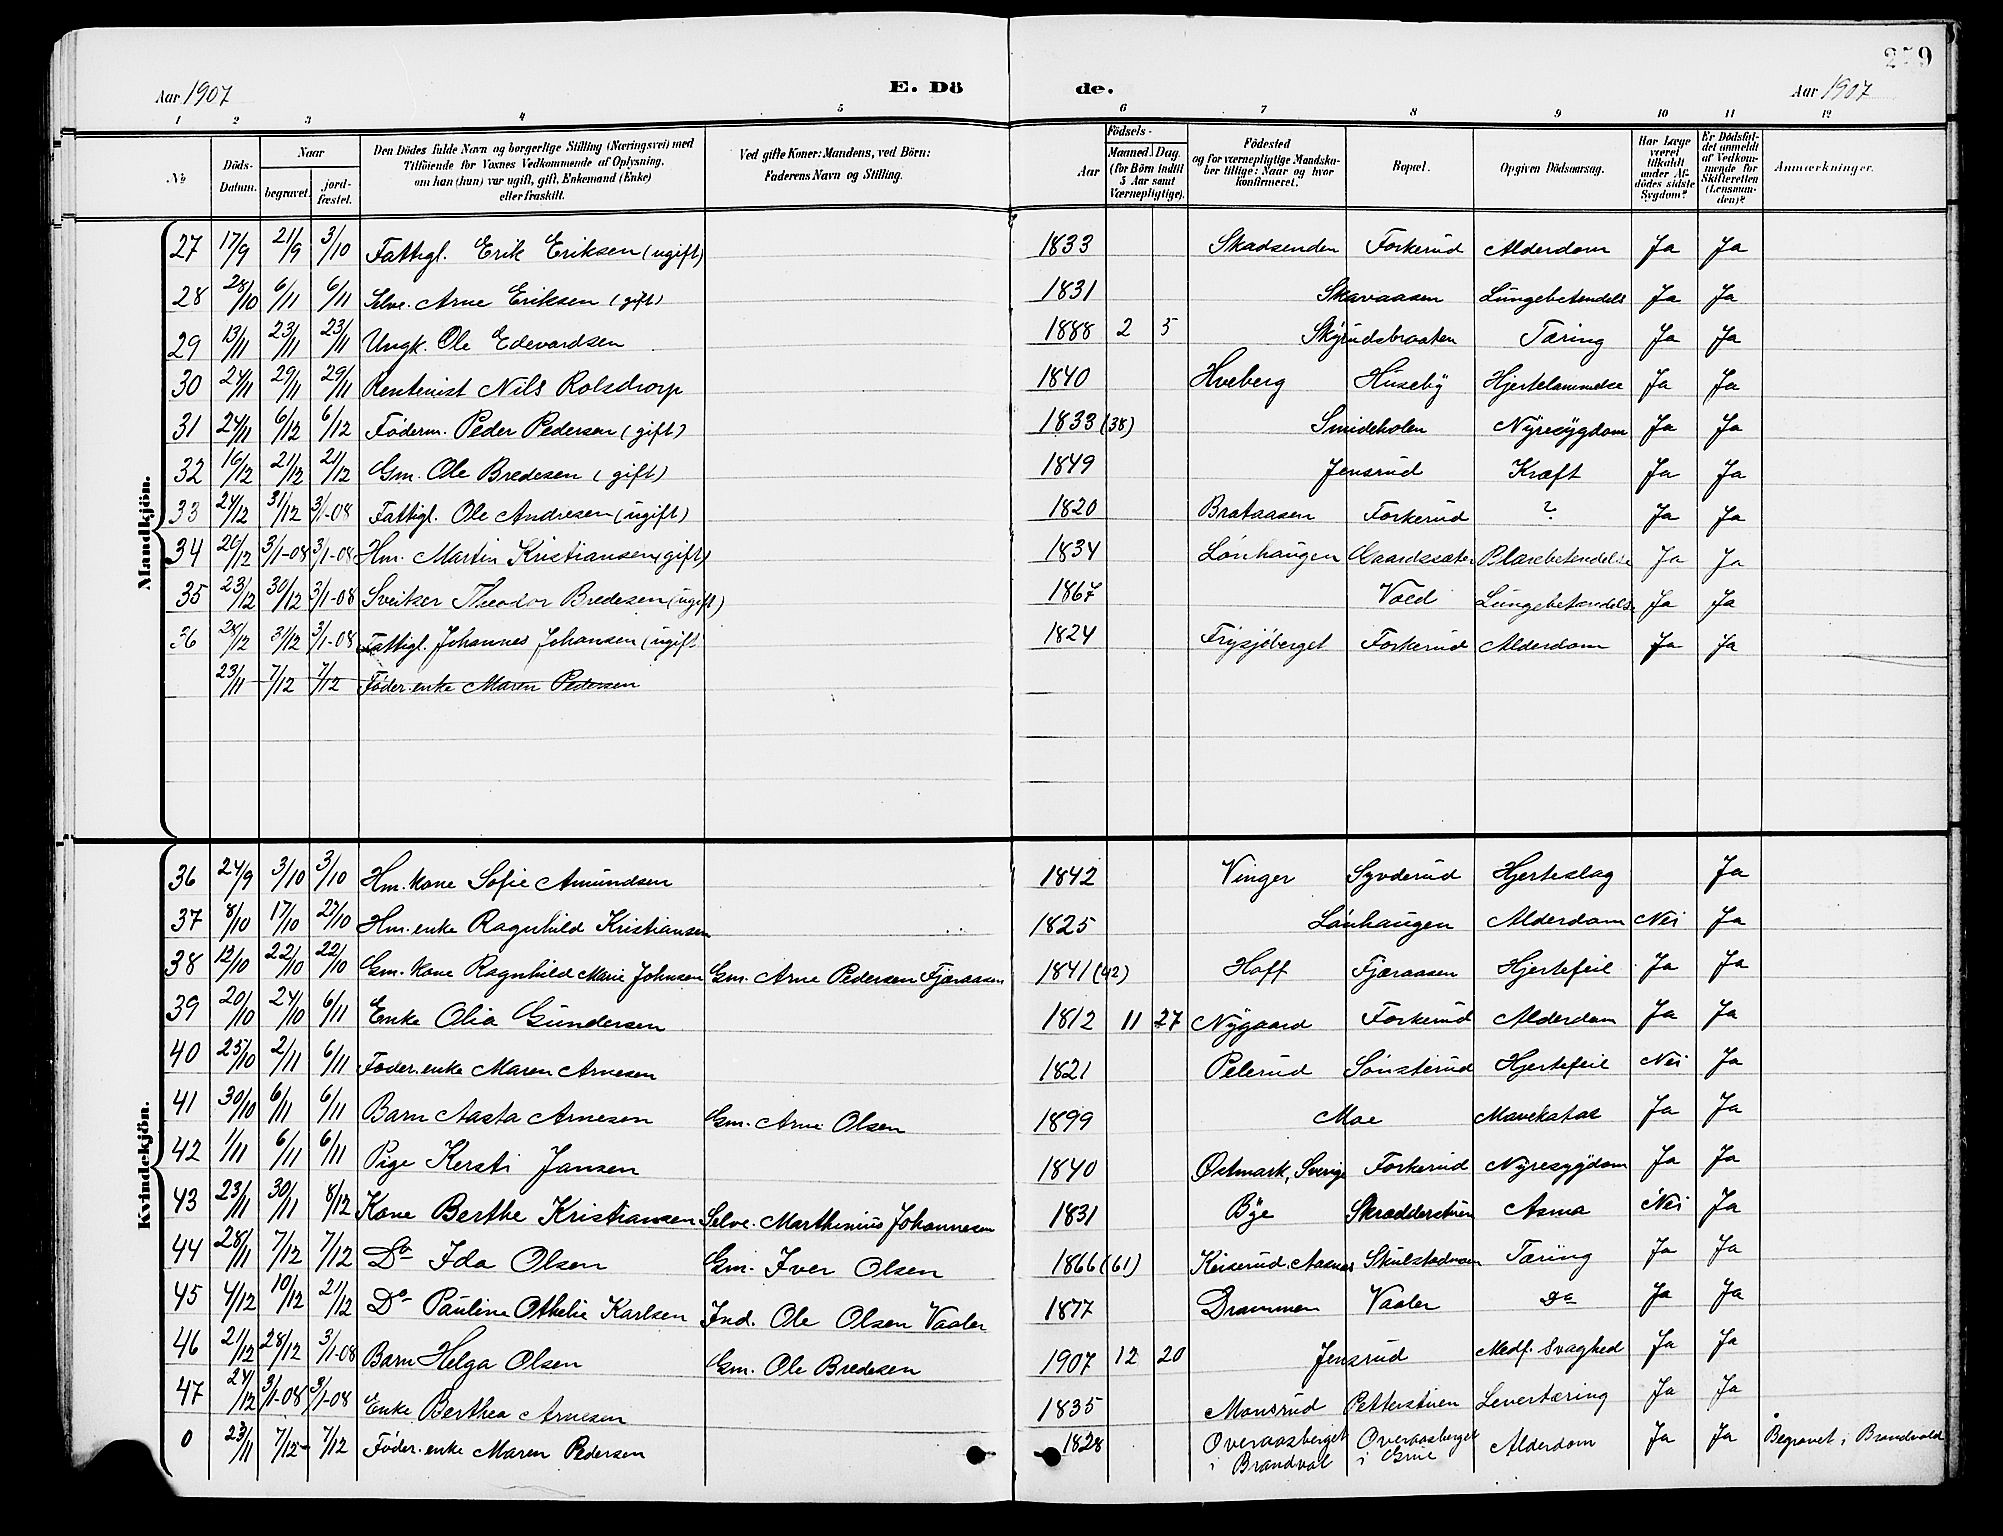 259
Aar 1907 E. Dö de. Aar 1907
1 2 3 4 5 6 7 8 9 10 11 12
No Döds-Datum. Naar begravet. jord-fæstet. Den Dödes fulde Navn og borgerlige Stilling (Næringsvei) med Tilföiende for Voxnes Vedkommende af Oplysning, om han (hun) var ugift, gift, Enkemand (Enke) eller fraskilt. Ved gifte Koner: Mandens, ved Börn: Faderens Navn og Stilling. Födsels- Aar Maaned. Dag. (for Börn indtil 5 Aar samt Værnepligtige). Födested og for værnepligtige Mandskaber tillige: Naar og hvor konfirmeret. Bopæl. Opgiven Dödsaarsag. Har Læge været tilkaldt under Afdödes sidste Sygdom? Er Dödsfaldet anmeldt af Vedkommende for Skifteretten (Lensmanden)? Anmærkninger.
Mandkjön.
27 17/9 21/9 3/10 Fattigl. Erik Eriksen (ugift) 1833 Skadsenden Forkerud Alderdom Ja Ja
28 28/10 6/11 6/11 Selve. Arne Eriksen (gift) 1831 Skavaasen Lungebetendels Ja Ja
29 13/11 23/11 23/11 Ungk. Ole Edevardsen 1888 2 5 Skyrudsbraaten Tæring Ja Ja
30 24/11 29/11 29/11 Rentenist Nils Rolsdrorp 1840 Hveberg Huseby Hjertelammelse Ja Ja
31 24/11 6/12 6/12 Föderm. Peder Pedersen (gift) 1833 (38) Smideholen Nyresygdom Ja Ja
32 16/12 21/12 21/12 Gm. Ole Bredesen (gift) 1849 Jensrud Kræft Ja Ja
33 24/12 31/12 3/1-08 Fattigl. Ole Andresen (ugift) 1820 Brataasen Forkerud ? Ja Ja
34 26/12 3/1-08 3/1-08 Hm. Martin Kristiansen (gift) 1834 Lönhaugen Gaardssæter Blærebetendelse Ja Ja
35 23/12 30/12 3/1-08 Sveitser Theodor Bredesen (ugift) 1867 Vold Lungebetændels Ja Ja
36 28/12 31/12 3/1-08 Fattigl. Johannes Johansen (ugift 1824 Frysjöberget Forkerud Alderdom Ja Ja
23/11 7/12 7/12 Föder.enke Maren Pedersen
Kvindekjön.
36 24/9 3/10 3/10 Hm. kone Sofie Amundsen 1842 Vinger Syvderud Hjerteslag Ja
37 8/10 17/10 27/10 Hm. enke Ragnhild Kristiansen 1825 Lönhaugen Alderdom Nei Ja
38 12/10 22/10 22/10 Gm. kone Ragnhild Marie Johnsen Gm. Arne Pedersen Fjæraasen 1841 (42) Hoff Fjæraasen Hjertefeil Ja Ja
39 20/10 24/10 6/11 Enke Olia Gundersen 1812 11 27 Nygaard Forkerud Alderdom Ja Ja
40 25/10 2/11 6/11 Föder.enke Maren Arnesen 1821 Pelerud Sönsterud Hjertefeil Nei Ja
41 30/10 6/11 6/11 Barn Aasta Arnesen Gm. Arne Olsen 1899 Moe Mavekatar Ja Ja
42 1/11 6/11 6/11 Pige Kersti Jansen 1840 Østmark, Sverige Forkerud Nyresygdom Ja Ja
43 23/11 30/11 8/12 Kone Berthe Kristiansen Selve. Marthinius Johannesen 1831 Bye Skrædderstuen Asma Nei Ja
44 28/11 7/12 7/12 Do Ida Olsen Gm. Iver Olsen 1866 (61) Keiserud, Aasnes Skulstadmoen Tæring Ja Ja
45 4/12 10/12 21/12 Do Pauline Othelie Karlsen Ind. Ole Olsen Vaaler 1877 Drammen Vaaler Do Ja Ja
46 21/12 28/12 3/1-08 Barn Helga Olsen Gm. Ole Bredesen 1907 12 20 Jensrud Medf. Svaghed Ja Ja
47 24/12 3/1-08 3/1-08 Enke Berthea Arnesen 1835 Monsrud Petterstuen Levertæring Ja Ja
0 23/11 7/12 7/12 Föder.enke Maren Pedersen 1828 Overaasberget i Brandval Overaasberget i Grue Alderdom Ja Ja Begravet i Brandvold